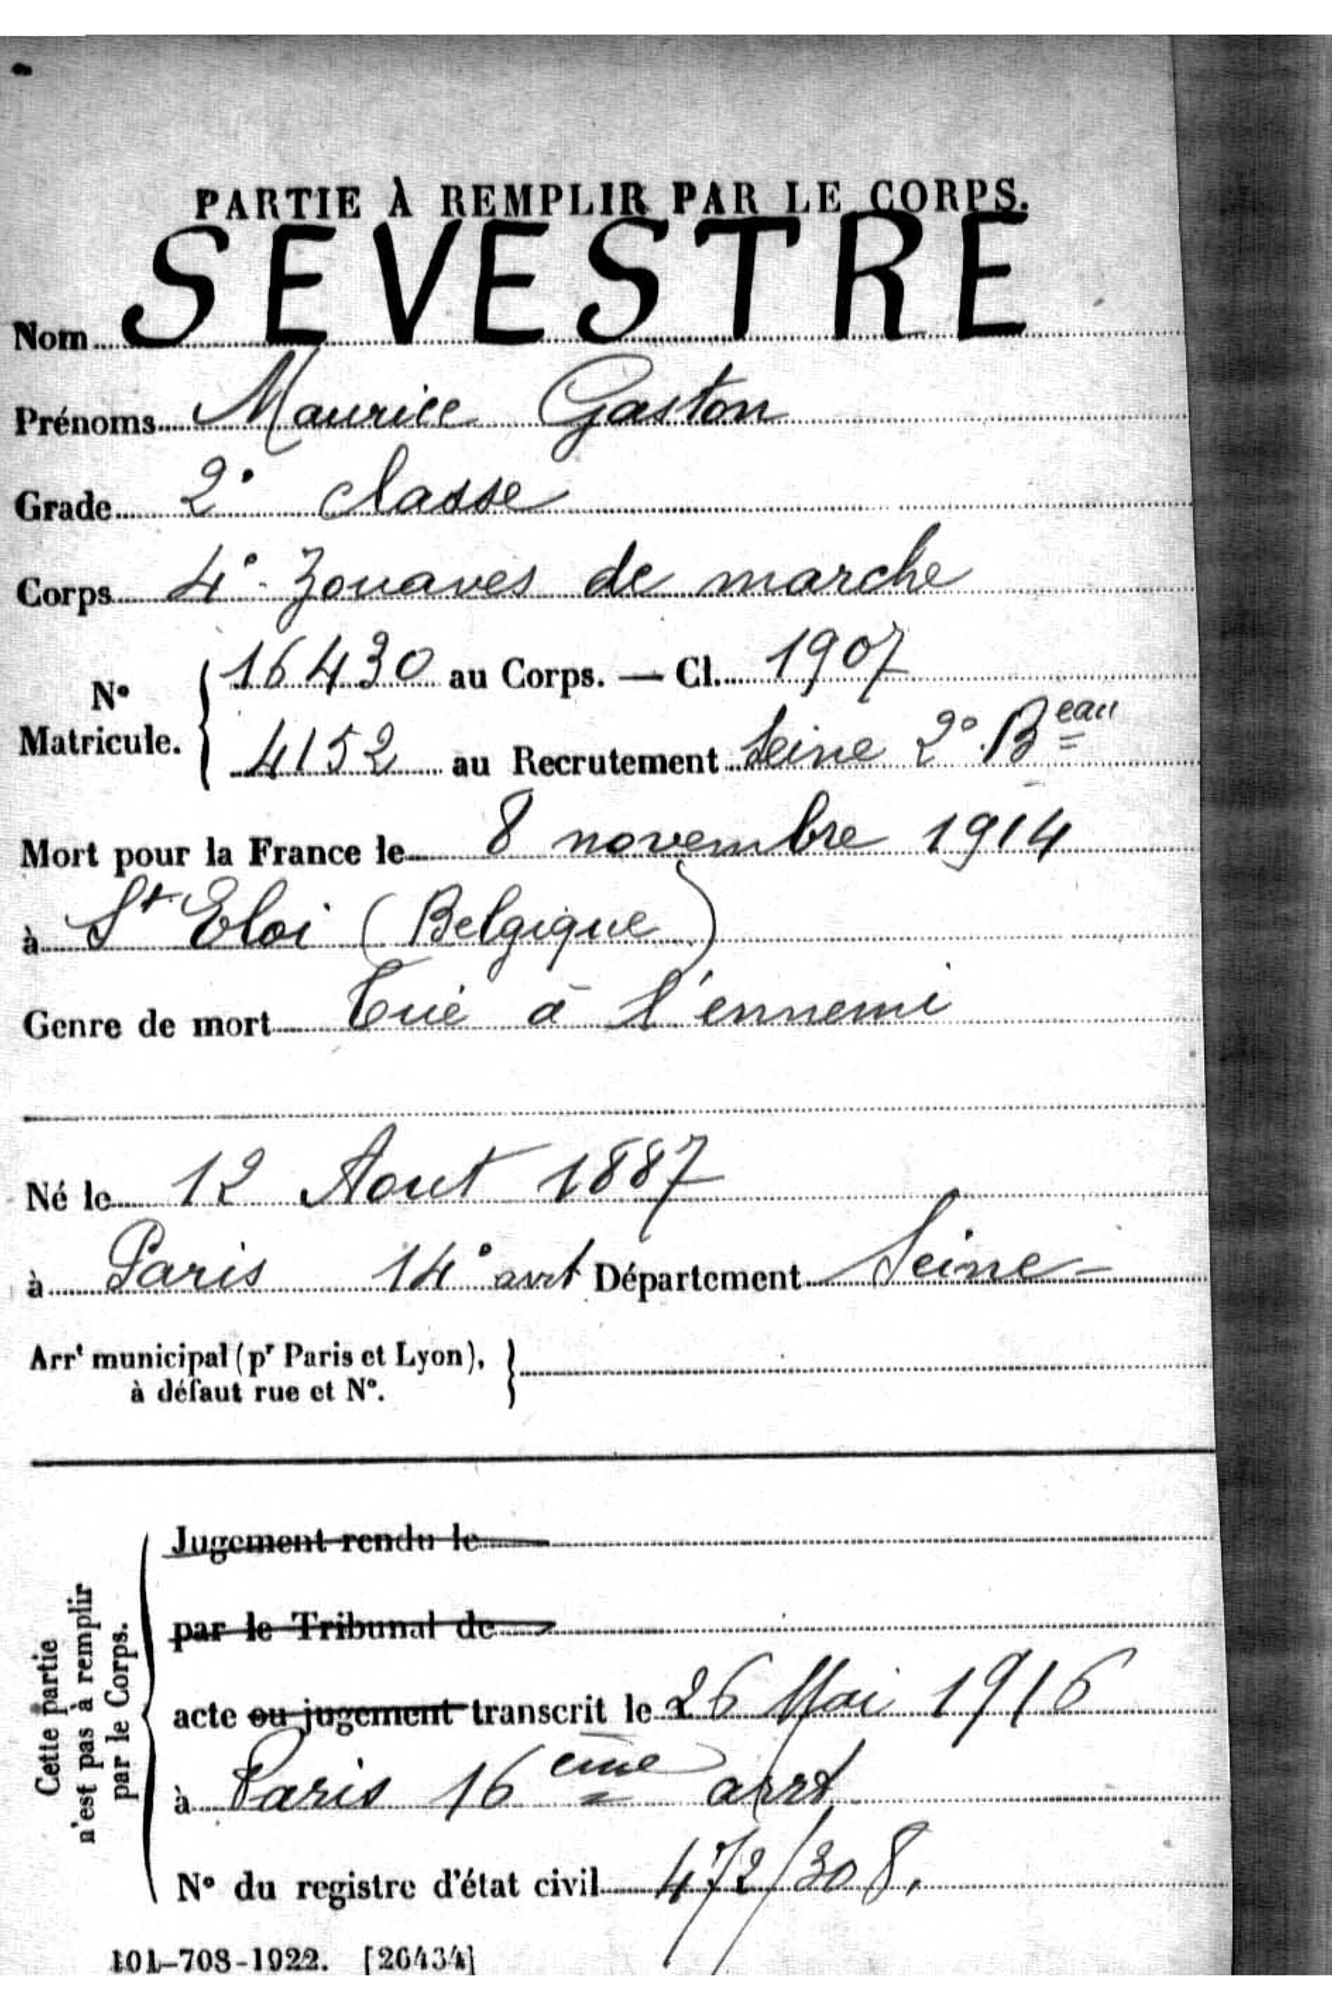 PARTIE À REMPLIR PAR LE CORPS.
Nom SEVESTRE
Prénoms Maurice Gaston
Grade 2e classe
Corps 4e Zouaves de marche
N° Matricule. { 16430 au Corps. — Cl. 1907
4152 au Recrutement Seine 2e Beau
Mort pour la France le 8 novembre 1914
à St Eloi (Belgique)
Genre de mort Tué à l'ennemi
Né le 12 Aout 1887
à Paris 14e arrt Département Seine
Arrt municipal (pr Paris et Lyon), }
à défaut rue et N°.
Cette partie
n'est pas à remplir
par le Corps.
Jugement rendu le
par le Tribunal de
acte ou jugement transcrit le 26 Mai 1916
à Paris 16ème arrt
N° du registre d'état civil 472/308.
101-708-1922. [26434]